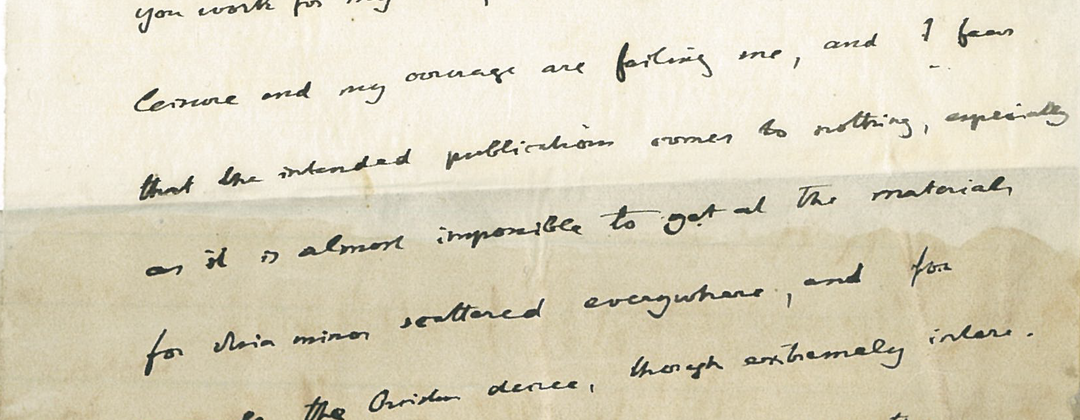 you work for my
leisure and my courage are failing me, and I fear
that the intended publication comes to nothing, especially
as it is almost impossible to get at the materials
for Asia minor scattered everywhere, and for
the dence, though extremely intere-